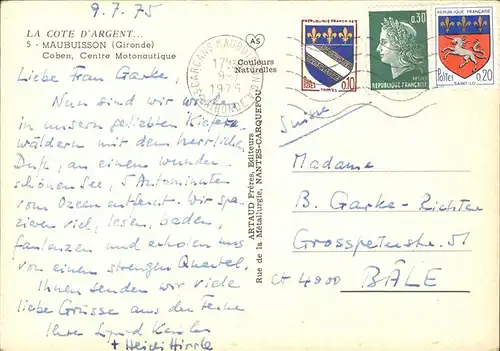 9.7.75
LA COTE D'ARGENT...
5 - MAUBUISSON (Gironde)
Coben, Centre Motonautique
Couleurs
Naturelles
AS
CARCANS MAUBUISSON
17H
9-7
1975
GIRONDE
REPUBLIQUE FRANCAISE
Postes 0,10
TROYES
0,30
REPUBLIQUE FRANÇAISE
REPUBLIQUE FRANCAISE
Postes 0,20
SAINT-LO
Liebe Frau Garke,
Nun sind wir wieder
in unsern geliebten Kiefern-
wäldern mit dem herrlichen
Duft, an einem wunder-
schönen See, 5 Autominuten
vom Ozean entfernt. Wir spa-
zieren viel, lesen, baden,
faulenzen und erholen uns
von einem strengen Quartal.
Ihnen senden wir viele
liebe Grüsse aus der Ferne
Ihre Sigrid Kessler
+ Heidi Hirsle
ARTAUD Frères, Editeurs
Rue de la Métallurgie, NANTES-CARQUEFOU
Suisse
Madame
B. Garke-Richter
Grosspeterstr. 51
CH 4000 BÂLE